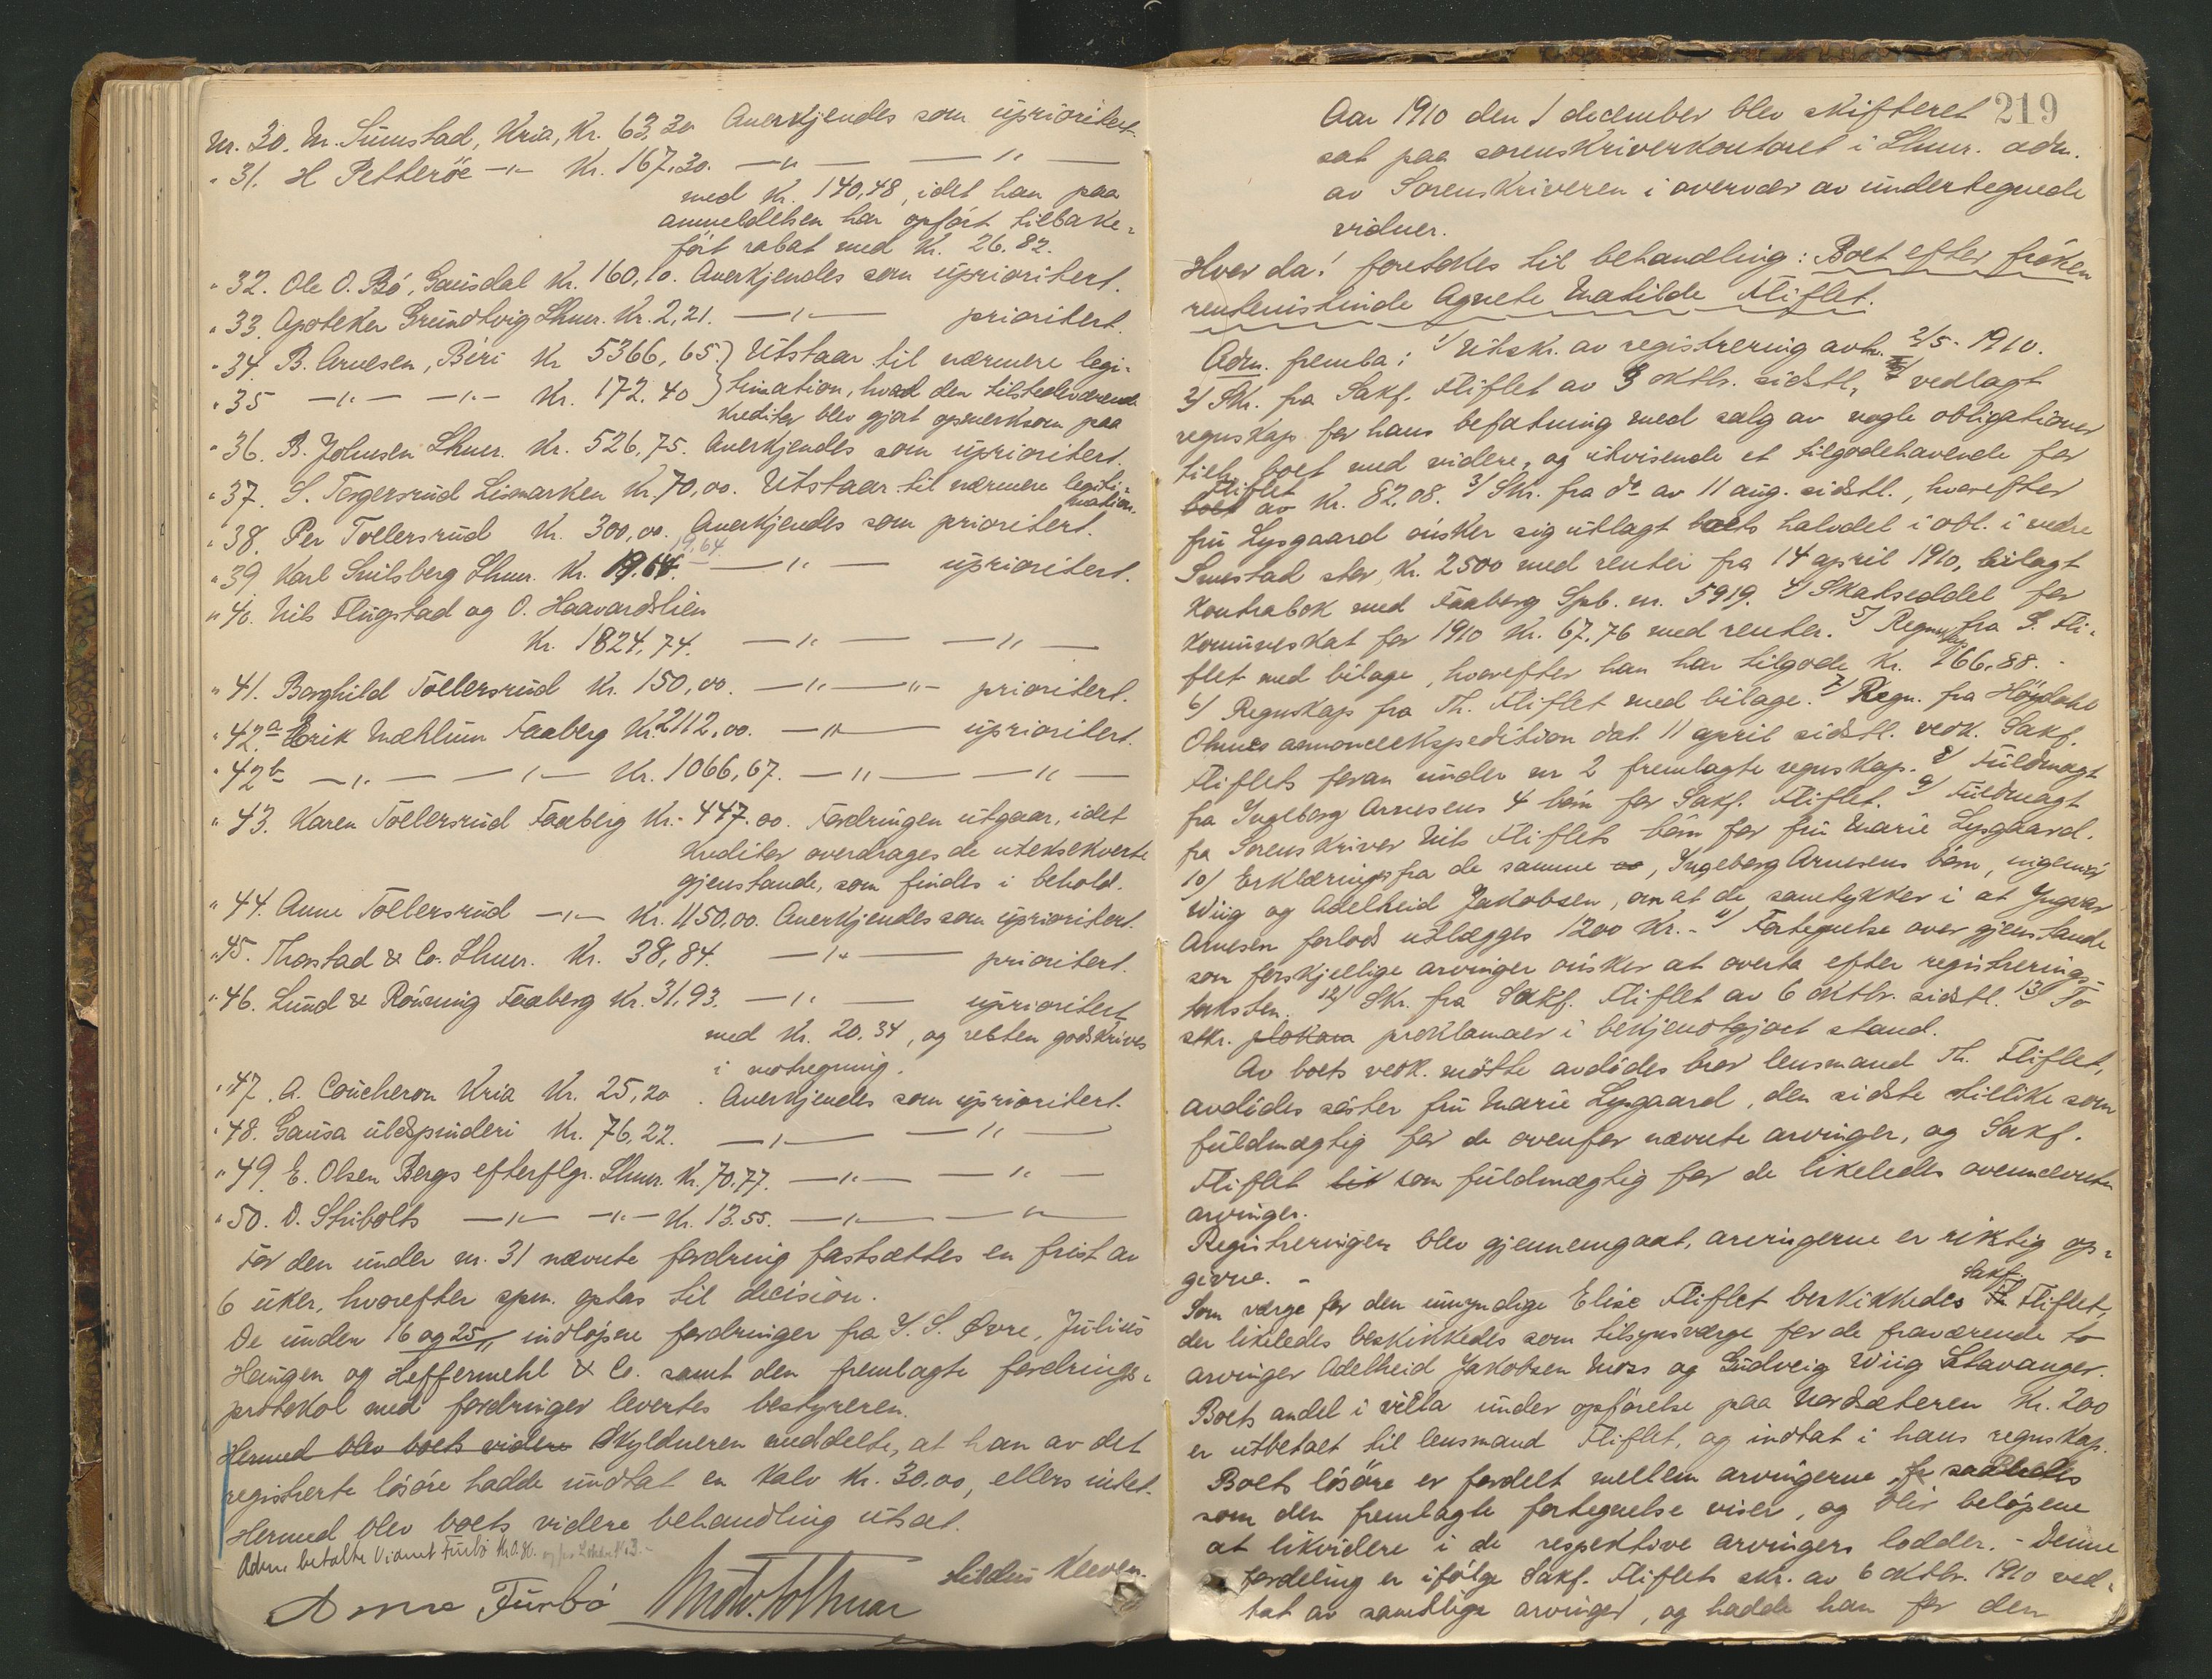 Nr. 30. M. Sunstad, Kria, Kr. 63,30 Anerkjendes som uprioritert.
" 31. H Petteröe —"— Kr. 167,30. —"— —"—
med Kr. 140,48, idet han paa
anmeldelsen har opført tilbake-
ført rabat med Kr. 26.82.
" 32. Ole O. Bö, Gausdal Kr. 160,10. Anerkjendes som uprioritert.
" 33. Apoteker Grundtvig Lhmr. Kr. 2,21. —"— prioritert.
" 34. B. Arnesen, Biri Kr 5366,65. } Utstaar til nærmere legi-
" 35 —"— —"— Kr. 172.40 } timation, hvad den tilstedeværende
kreditor blev gjort opmerksom paa
" 36. B. Johnsen Lhmr. Kr. 526,75. Anerkjendes som uprioritert.
" 37. S. Torgersrud Lismarken Kr. 70,00. Utstaar til nærmere legiti-
mation.
" 38. Per Tollersrud Kr. 300,00. Anerkjendes som prioritert.
19,64
" 39. Karl Smilsberg Lhmr. Kr. 19.64. —"— uprioritert.
" 40. Nils Flugstad og O. Haavardslien
Kr. 1824,74. —"— —"—
" 41. Borghild Tollersrud Kr. 150,00. —"— —"— prioritert.
" 42a Erik Mæhlum Faaberg Kr. 2112,00. —"— uprioritert.
" 42b —"— —"— Kr. 1066,67. —"— —"—
" 43. Karen Tollersrud Faaberg Kr. 447.00. Fordringen utgaar, idet
kreditor overdrages de uteksekverte
gjenstande, som findes i behold.
" 44. Anne Tollersrud —"— Kr. 450,00. Anerkjendes som uprioritert.
" 45. Thorstad & Co. Lhmr. Kr. 38,84. —"— prioritert.
" 46. Lund & Rönning Faaberg Kr. 31,93. —"— uprioritert
med Kr. 20.34, og resten godskrives
i motregning.
" 47. A. Coucheron Kria Kr. 25,20. Anerkjendes som uprioritert.
" 48. Gausa uldspinderi Kr. 76,22. —"— —"—
" 49. E. Olsen Bergs efterflgr. Lhmr. Kr. 70.77. —"— —"—
" 50. D. Stribolts —"— —"— Kr. 13.55. —"— —"—
For den under nr. 31 nævnte fordring fastsættes en frist av
6 uker, hvorefter spm. optas til decision.
De under 16 og 25 indløpne fordringer fra S. S. Øvre, Julius
Haugen og Heffermehl & Co. samt den fremlagte fordrings-
protokol med fordringer levertes bestyreren.
Hermed blev boets videre Skyldneren meddelte, at han av det
registrerte løsöre hadde undtat en kalv Kr. 30.00, ellers intet.
Hermed blev boets videre behandling utsat.
Adm. betalte Vidnet Furbö Kr 0.80.
Anna Furbö Hildus Kleven.
219
Aar 1910 den 1 december blev skifteret
sat paa sorenskriverkontoret i Lhmr. adm.
av Sorenskriveren i overvær av undertegnede
vidner.
Hvor da! foretokes til behandling: Boet efter fröken
rentenistinde Agnete Matilde Fliflet.
Adm. fremla: 1/ Utskr. av registrering avh. 2/5 - 1910.
2/ Skr. fra Sakf. Fliflet av 3 oktbr. sidstl., vedlagt
regnskap for hans befatning med salg av nogle obligationer
tilh. boet med videre, og utvisende et tilgodehavende for
Fliflet
boet av Kr. 82,08. 3/ Skr. fra do av 11 aug. sidstl., hvorefter
fru Lysgaard önsker sig utlagt boets halvdel i obl. i nedre
Smestad stor Kr. 2500 med renter fra 14 april 1910, bilagt
Kontrabok med Faaberg Spb. nr. 5919. 4/ Skatseddel for
Kommuneskat for 1910 Kr. 67,76 med renter. 5/ Regnskap fra S. Fli-
flet med bilage, hvorefter han har tilgode Kr. 166,88.
6/ Regnskap fra Th. Fliflet med bilage. 7/ Regn. fra Höydahl
Ohmes annonceekspedition dat. 11 april sidstl. vedk. Sakf.
Fliflets foran under nr 2 fremlagte regnskap. 8/ Fuldmagt
fra Ingeborg Arnesens 4 börn for Sakf. Fliflet. 9/ Fuldmagt
fra Sorenskriver Nils Fliflets börn for fru Marie Lysgaard.
10/ Erklæringer fra de samme, Ingeborg Arnesens börn, ingeniör
Wiig og Adelheid Jakobsen, om at de samtykker i at Ingvar
Arnesen forlods utlægges 1200 Kr. - 11/ Fortegnelse over gjenstande
som forskjellige arvinger önsker at overta efter registrerings-
taksten. 12/ Skr. fra Sakf. Fliflet av 6 oktbr. sidstl. 13/ To
stkr. plokam proklamaer i bekjendtgjort stand.
Av boets vedk. mötte avdödes bror lensmand Th. Fliflet,
avdödes söster fru Marie Lysgaard, den sidste tillike som
fuldmægtig for de ovenfor nævnte arvinger, og Sakf.
Fliflet lik som fuldmægtig for de likeledes ovennævnte
arvinger.
Registreringen blev gjennemgaat, arvingerne er riktig op-
givne. -
Sakf.
Som værge for den umyndige Elise Fliflet beskikkedes Th. Fliflet,
der likeledes beskikkedes som tilsynsværge for de fraværende to
arvinger Adelheid Jakobsen Moss og Gudveig Wiig Stavanger.
Boets andel i villa under opförelse paa Nordsæteren Kr. 200
er utbetalt til lensmand Fliflet, og indtat i hans regnskap.
Boets lösöre er fordelt mellem arvingerne saaledes
som den fremlagte fortegnelse viser, og blir belöpene
at likvidere i de respektive arvingers lodder. - Denne
fordeling er ifölge Sakf. Fliflets skr. av 6 oktbr. 1910 ved-
tat av samtlige arvinger, og hadde han for den